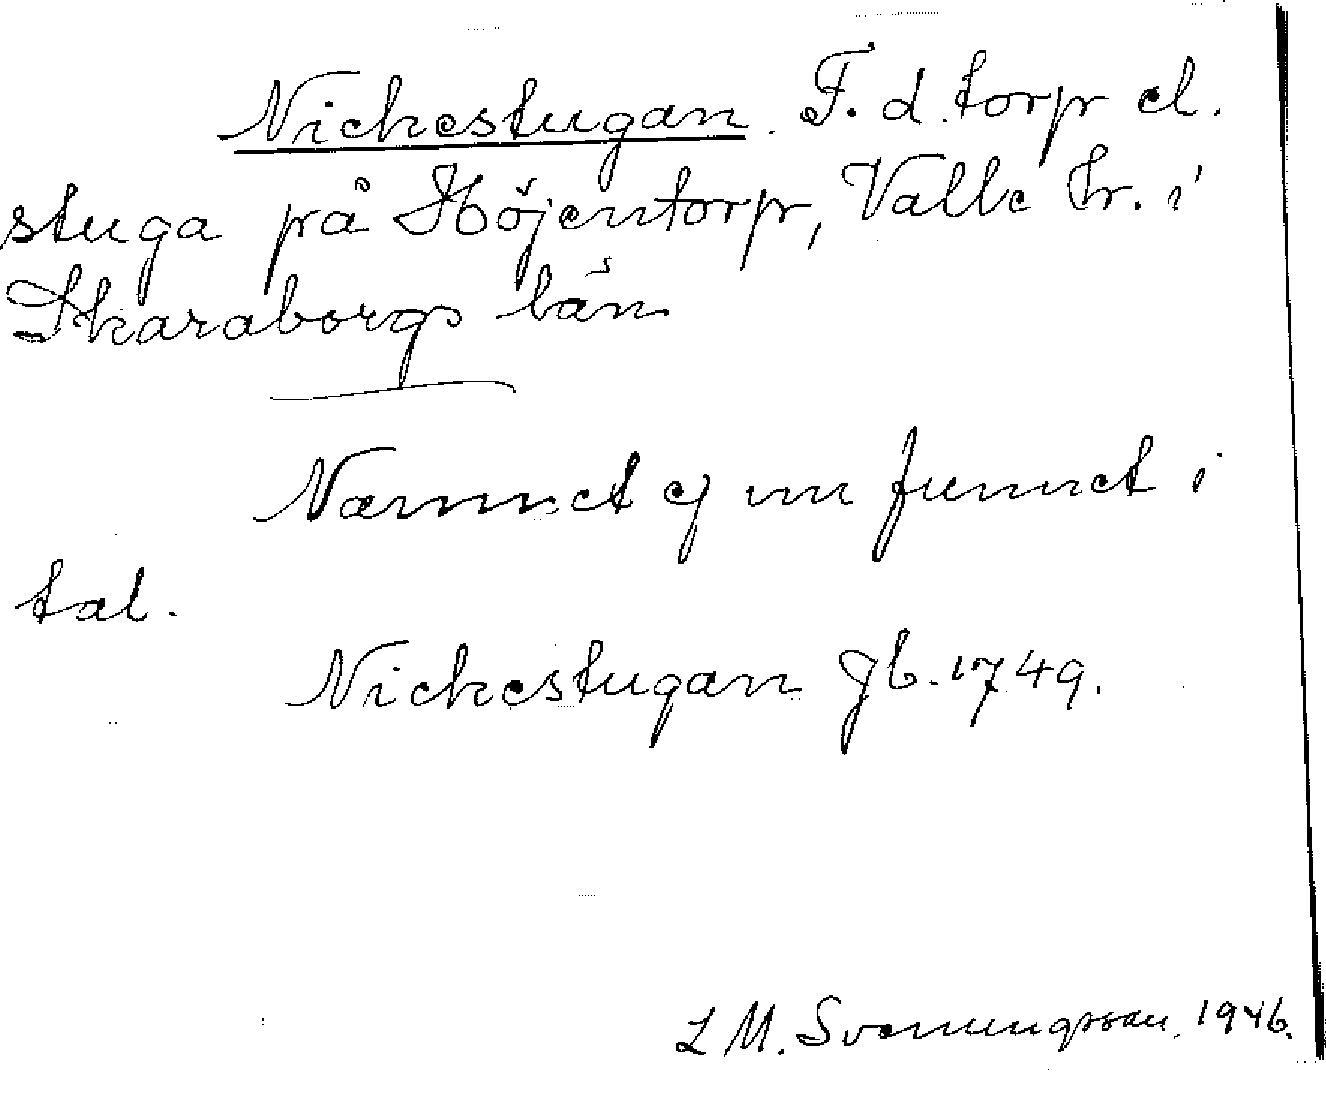 Nickestugan. F. d. torp el.
stuga på Höjentorp, Valle hr. i
Skaraborgs län
Namnet ej nu funnet i
tal.
Nickestugan Jb. 1749.
L M. Svenungsson. 1946.